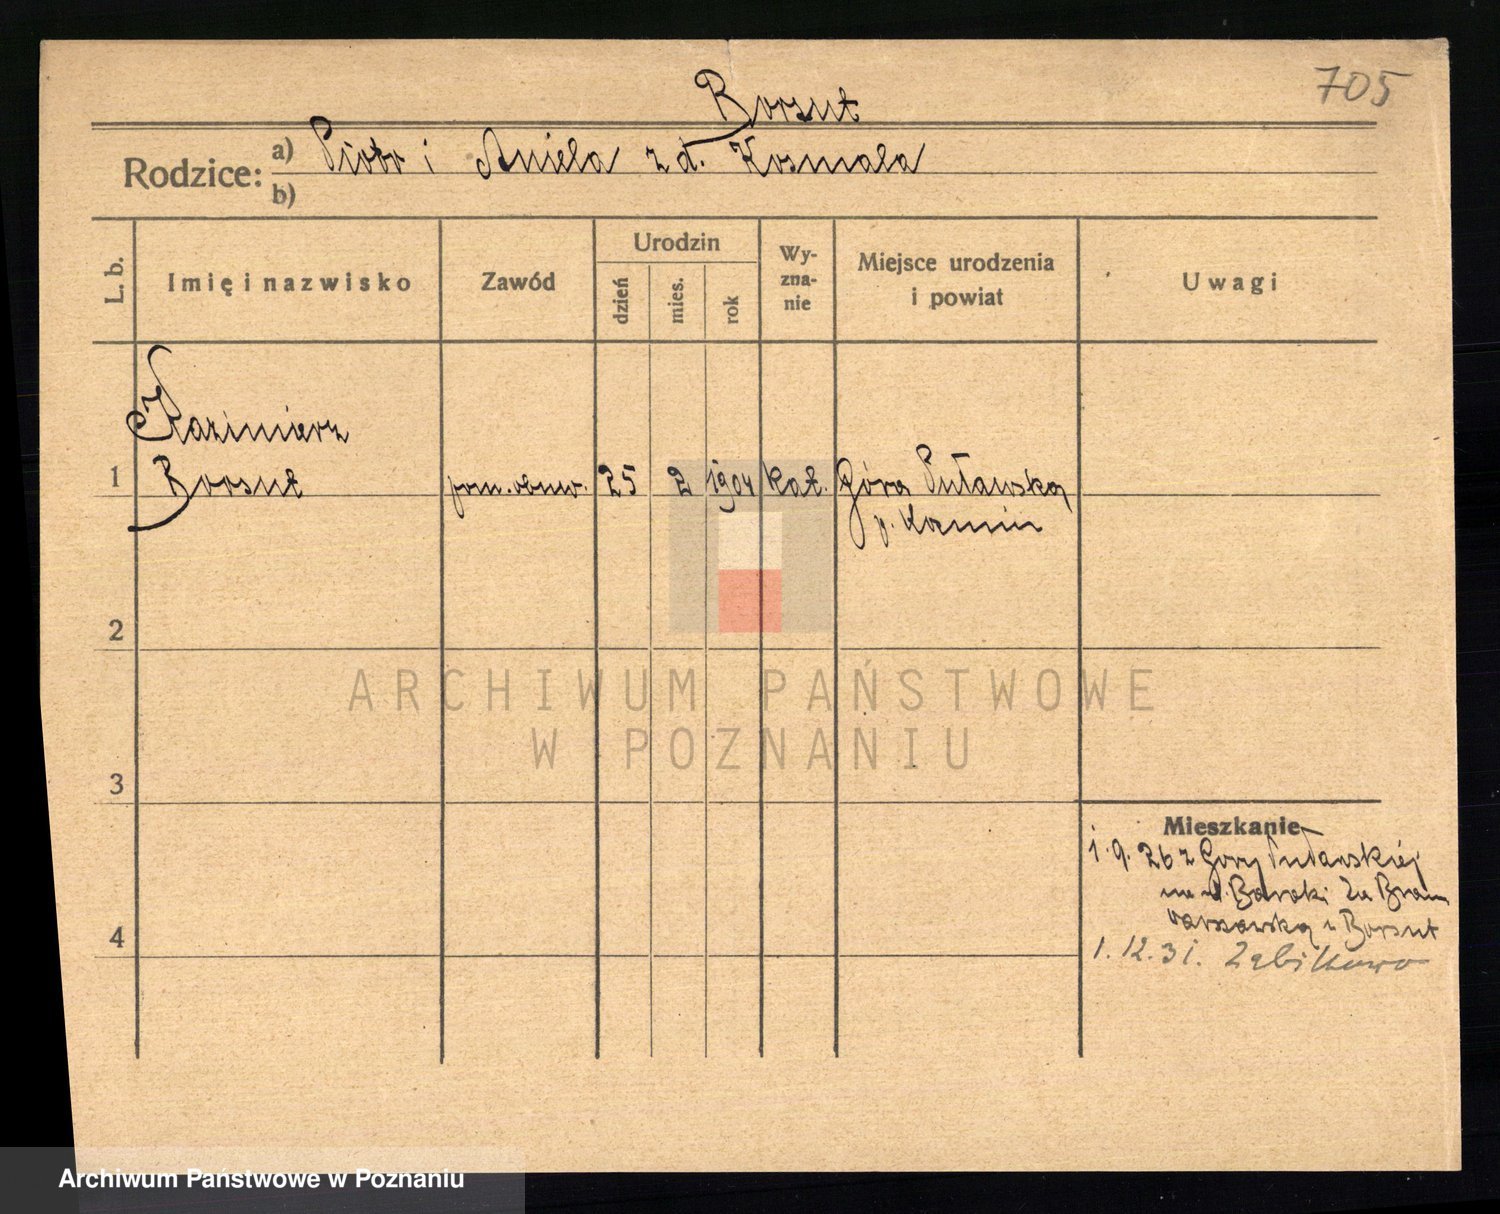 705
Borsut
Rodzice: a) Piotr i Aniela z d. Kosmala
b)
L. b. Imię i nazwisko Zawód Urodzin dzień mies. rok Wyznanie Miejsce urodzenia i powiat Uwagi
Kazimierz
1 Borsut 25 2 1904 kat. Góra Puławska
p. Kozienice
2
ARCHIWUM PAŃSTWOWE
W POZNANIU
3
Mieszkanie
1. 9. 26 z Góry Puławskiej
Baraki Za Bramą
warszawską Borsut
4
1. 12. 31. Żabikowo
Archiwum Państwowe w Poznaniu